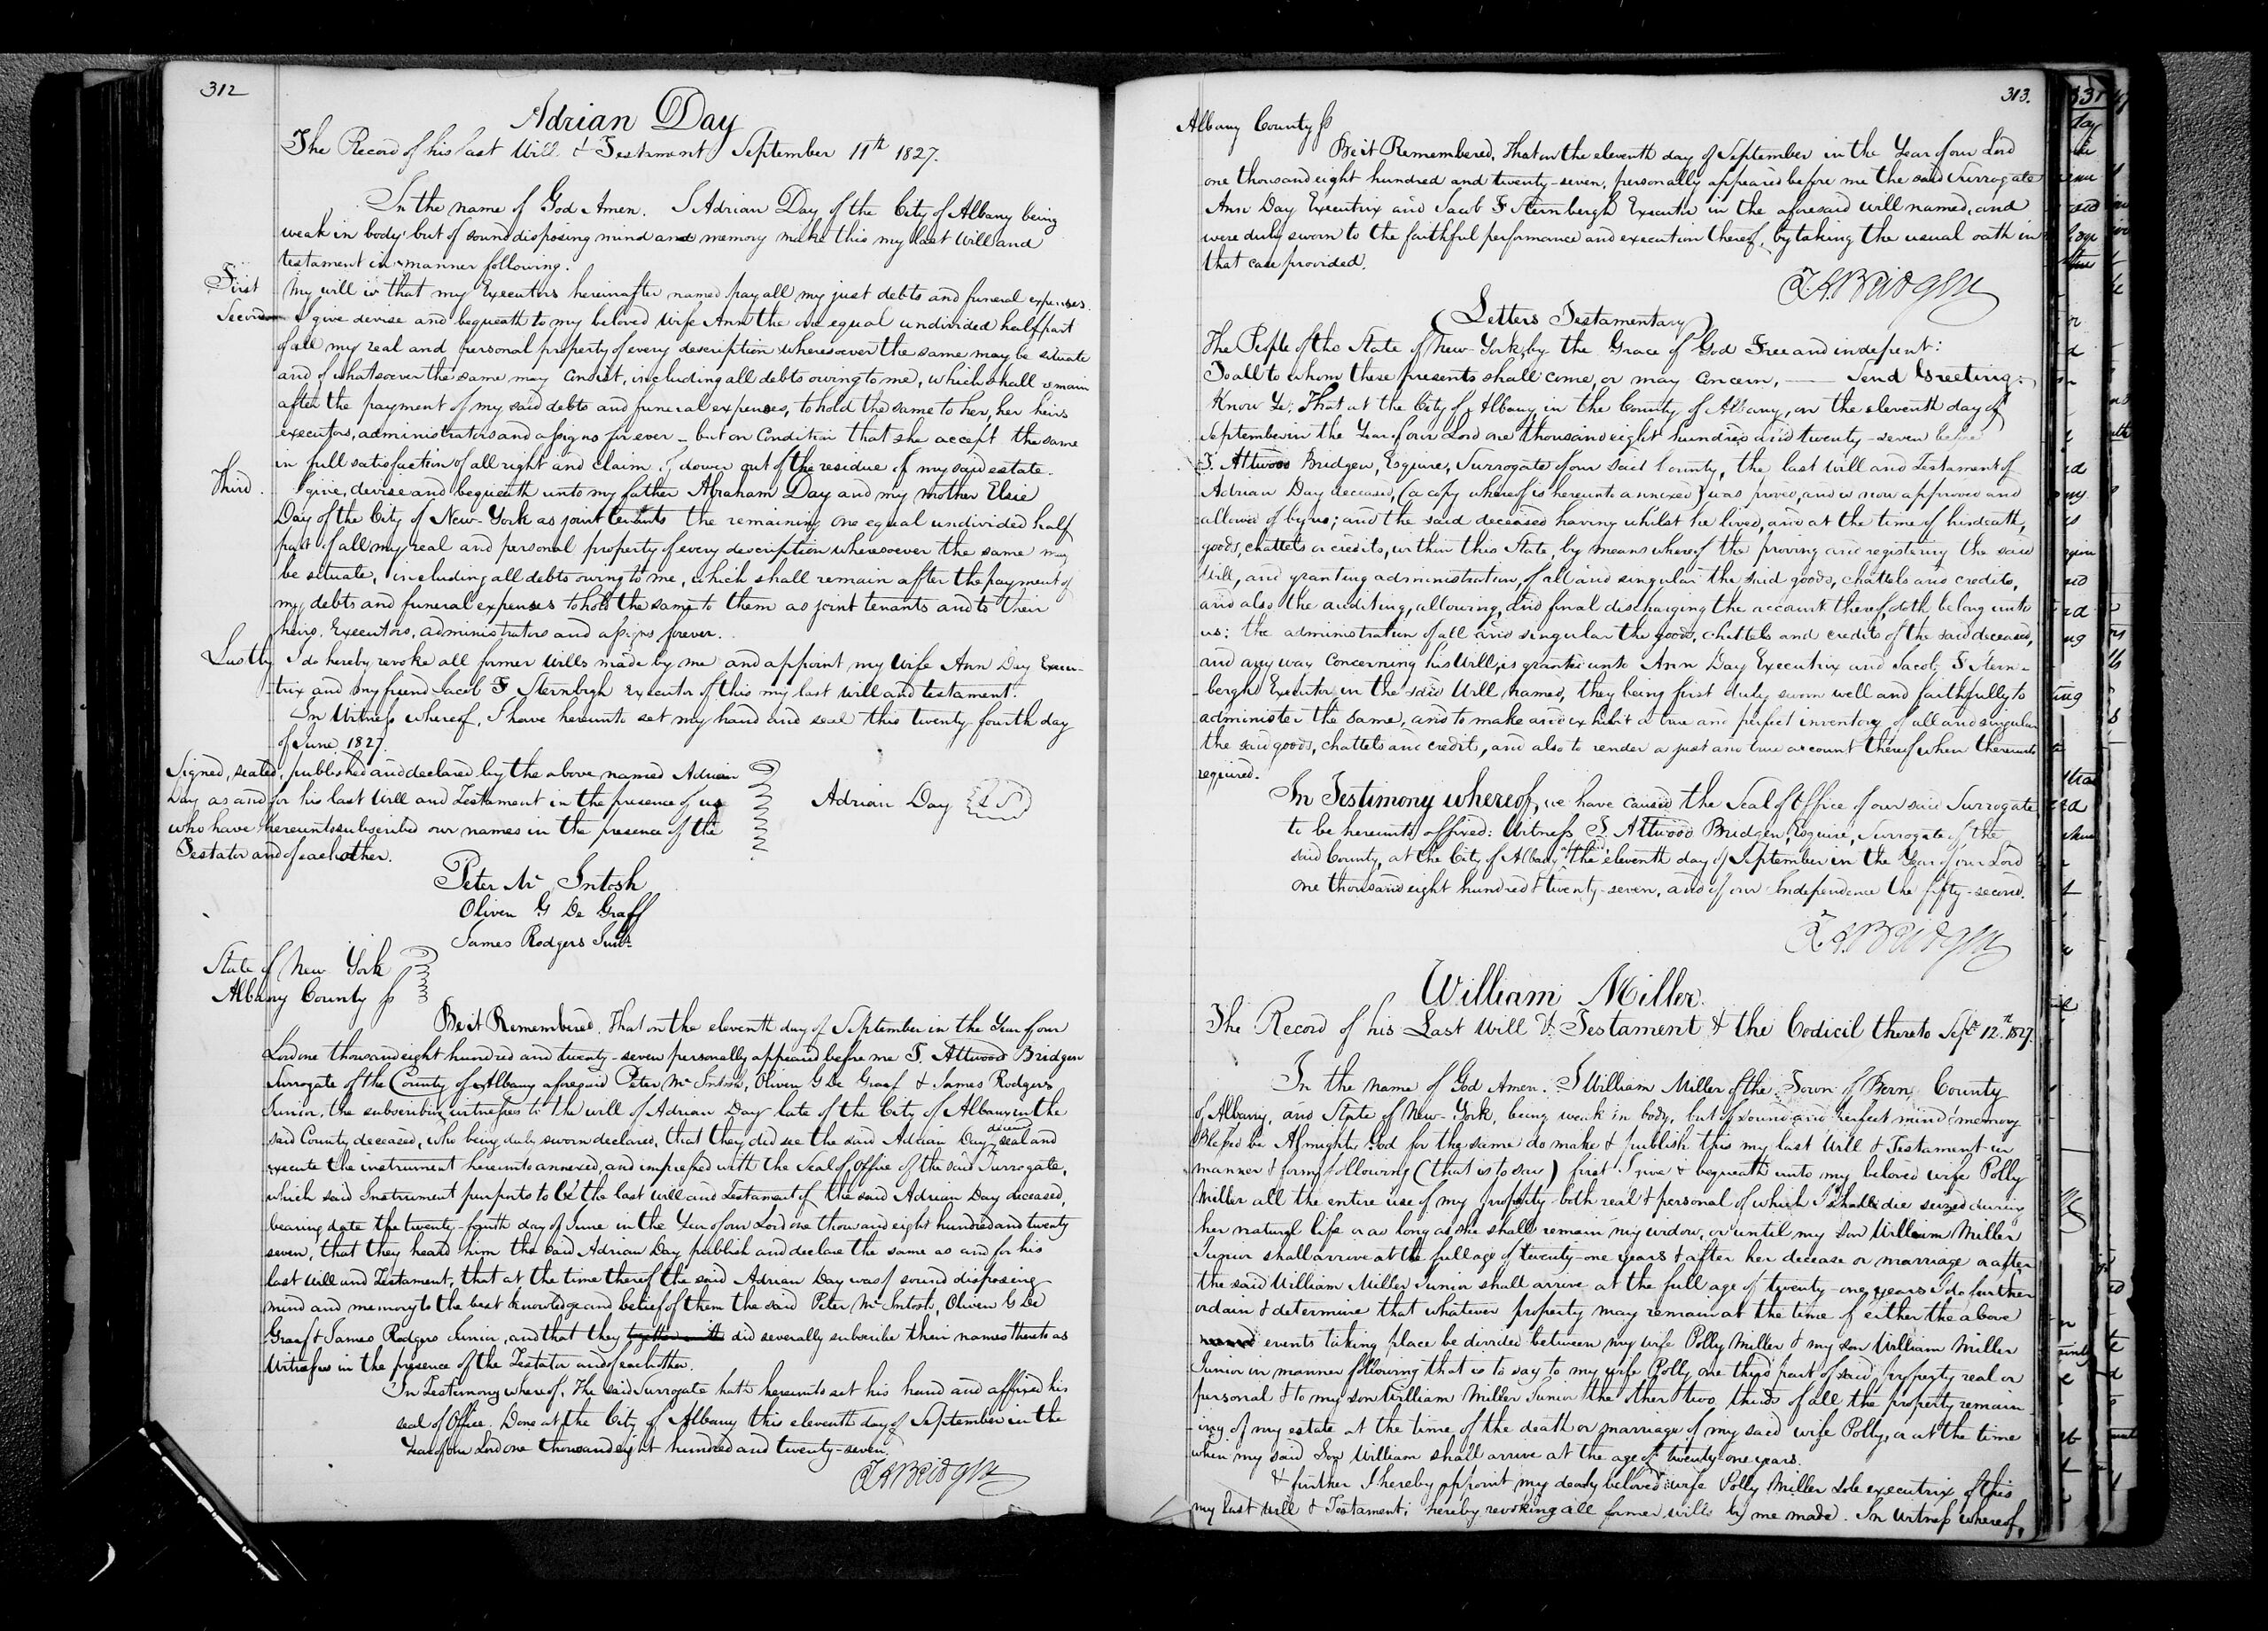 312
Adrian Day
The Record of his last Will & Testament September 11th 1827.
In the name of God Amen. I Adrian Day of the City of Albany being
weak in body but of sound disposing mind and memory make this my last Will and
testament in manner following.
First My will is that my Executors hereinafter named pay all my just debts and funeral expenses.
Second I give devise and bequeath to my beloved Wife Ann the one equal undivided half part
of all my real and personal property of every description wheresoever the same may be situate
and of whatsoever the same may consist, including all debts owing to me, which shall remain
after the payment of my said debts and funeral expenses, to hold the same to her, her heirs
executors, administrators and assigns for ever - but on Condition that she accept the same
in full satisfaction of all right and claim of dower out of the residue of my said estate.
Third. I give, devise and bequeath unto my father Abraham Day and my mother Elsie
Day of the City of New-York as joint tenants the remaining one equal undivided half
part of all my real and personal property of every description wheresoever the same may
be situate, including all debts owing to me, which shall remain after the payment of
my debts and funeral expenses to hold the same to them as joint tenants and to their
heirs, Executors, administrators and assigns forever.
Lastly I do hereby revoke all former Wills made by me and appoint my Wife Ann Day Execu-
-trix and my friend Jacob F Sternbergh Executor of this my last will and testament.
In Witness whereof, I have hereunto set my hand and seal this twenty-fourth day
of June 1827.
Signed, sealed, published and declared by the above named Adrian
Day as and for his last Will and Testament in the presence of us
who have hereunto subscribed our names in the presence of the
Testator and of each other.
Adrian Day L S
Peter Mc Intosh
Oliver G De Graff
James Rodgers Junr.
State of New York
Albany County ss
Be it Remembered, That on the eleventh day of September in the Year of our
Lord one thousand eight hundred and twenty-seven personally appeared before me T. Attwood Bridgen
Surrogate of the County of Albany aforesaid Peter Mc Intosh, Oliver G De Graaf & James Rodgers
Junior, the subscribing witnesses to the will of Adrian Day late of the City of Albany in the
said County deceased, who being duly sworn declared, that they did see the said Adrian Day seal and
execute the instrument hereunto annexed, and impressed with the Seal of Office of the said Surrogate,
which said Instrument purports to be the last will and Testament of the said Adrian Day deceased,
bearing date the twenty-fourth day of June in the Year of our Lord one thousand eight hundred and twenty
seven, that they heard him the said Adrian Day publish and declare the same as and for his
last Will and Testament, that at the time thereof the said Adrian Day was of sound disposing
mind and memory to the best knowledge and belief of them the said Peter Mc Intosh, Oliver G De
Graaf & James Rodgers Junior, and that they together with did severally subscribe their names thereto as
Witnesses in the presence of the Testator and of each other.
In Testimony whereof, the said Surrogate hath hereunto set his hand and affixed his
seal of Office. Done at the City of Albany this eleventh day of September in the
Year of our Lord one thousand eight hundred and twenty-seven.
T A Bridgen
313.
Albany County ss
Be it Remembered, That on the eleventh day of September in the Year of our Lord
one thousand eight hundred and twenty-seven, personally appeared before me the said Surrogate
Ann Day Executrix and Jacob F Sternbergh Executor in the aforesaid will named, and
were duly sworn to the faithful performance and execution thereof, by taking the usual oath in
that case provided.
T. A. Bridgen
(Letters Testamentary)
The People of the State of New-York, by the Grace of God Free and indepent:
To all to whom these presents shall come, or may Concern, —— Send Greeting:
Know Ye; That at the City of Albany, in the County of Albany, on the eleventh day of
September in the Year of our Lord one thousand eight hundred and twenty-seven before
T. Attwood Bridgen, Esquire, Surrogate of our said County, the last Will and Testament of
Adrian Day deceased, (a copy whereof is hereunto annexed) was proved, and is now approved and
allowed of by us; and the said deceased having whilst he lived, and at the time of his death,
goods, chattels or credits, within this State, by means whereof the proving and registering the said
Will, and granting administration, of all and singular the said goods, chattels and credits,
and also the auditing, allowing, and final discharging the account thereof, doth belong unto
us; the administration of all and singular the goods, chattels and credits of the said deceased,
and any way concerning his Will, is granted unto Ann Day Executrix and Jacob F Stern-
-bergh Executor in the said Will named, they being first duly sworn well and faithfully to
administer the same, and to make and exhibit a true and perfect inventory of all and singular
the said goods, chattels and credits, and also to render a just and true account thereof when thereunto
required.
In Testimony whereof, we have caused the Seal of Office of our said Surrogate
to be hereunto affixed: Witness T. Attwood Bridgen, Esquire, Surrogate of the
said County, at the City of Albany the eleventh day of September in the Year of our Lord
one thousand eight hundred & twenty-seven, and of our Independence the fifty-second.
T A Bridgen
William Miller.
The Record of his Last Will & Testament & the Codicil thereto Sepr. 12th. 1827.
In the name of God Amen. I William Miller of the Town of Bern County
of Albany, and State of New-York, being weak in body, but of sound and perfect mind & memory
Blessed be Almighty God for the same do make & publish this my last Will & Testament in
manner & form following (that is to say) first I give & bequeath unto my beloved wife Polly
Miller all the entire use of my property both real & personal of which I shall die seized during
her natural life or as long as she shall remain my widow, or until my Son William Miller
Junior shall arrive at the full age of twenty-one years & after her decease or marriage or after
the said William Miller Junior shall arrive at the full age of twenty-one years I do further
ordain & determine that whatever property may remain at the time of either the above
named events taking place be divided between my wife Polly Miller & my son William Miller
Junior in manner following that is to say to my wife Polly one third part of said property real or
personal & to my son William Miller Junior the other two thirds of all the property remain
-ing of my estate at the time of the death or marriage of my said wife Polly, or at the time
when my said Son William shall arrive at the age of twenty one years.
& further I hereby appoint my dearly beloved wife Polly Miller Sole executrix of this
my last Will & Testament; hereby revoking all former wills by me made. In Witness whereof,